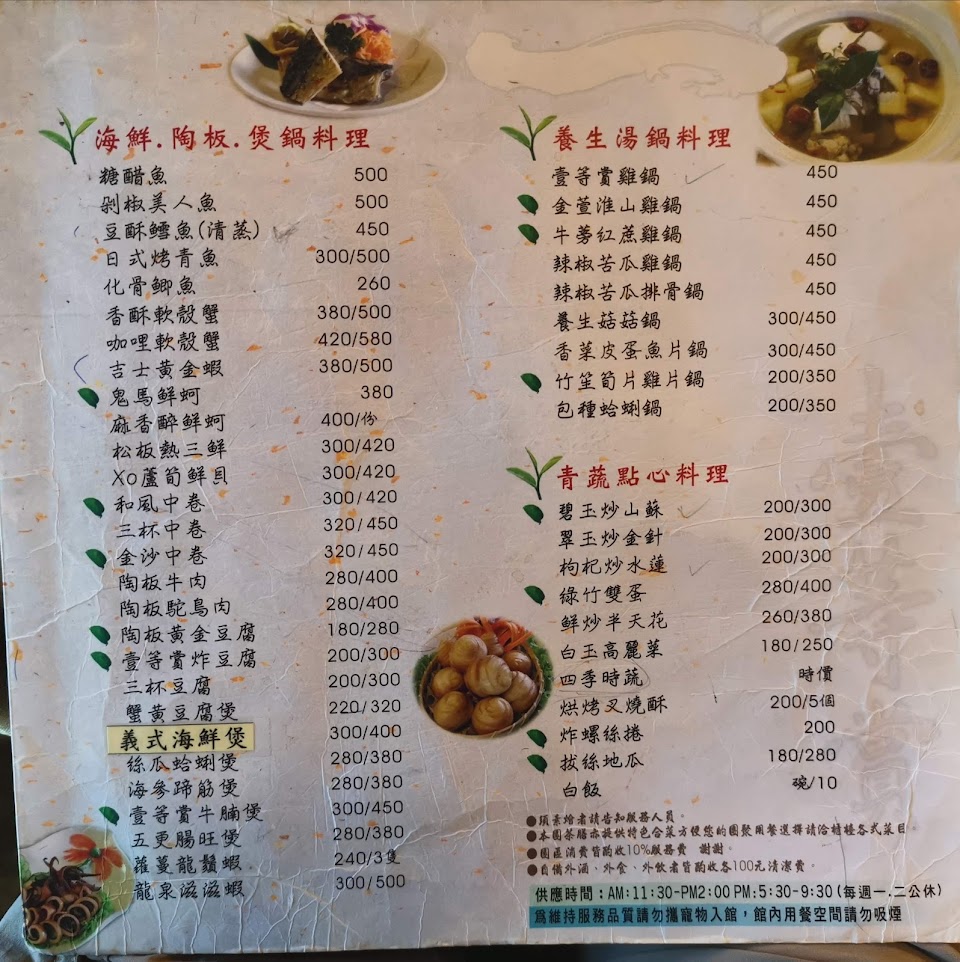 海鮮.陶板.煲鍋料理
糖醋魚 500
剁椒美人魚 500
豆酥鱈魚(清蒸) 450
日式烤青魚 300/500
化骨鯽魚 260
香酥軟殼蟹 380/500
咖哩軟殼蟹 420/580
吉士黃金蝦 380/500
鬼馬鮮蚵 380
麻香醉鮮蚵 400/份
松板熱三鮮 300/420
XO蘆筍鮮貝 300/420
和風中卷 300/420
三杯中卷 320/450
金沙中卷 320/450
陶板牛肉 280/400
陶板駝鳥肉 280/400
陶板黃金豆腐 180/280
壹等賞炸豆腐 200/300
三杯豆腐 200/300
蟹黃豆腐煲 220/320
義式海鮮煲 300/400
絲瓜蛤蜊煲 280/380
海參蹄筋煲 280/380
壹等賞牛腩煲 300/450
五更腸旺煲 280/380
蘿蔓龍鬚蝦 240/3隻
龍泉滋滋蝦 300/500
養生湯鍋料理
壹等賞雞鍋 450
金萱淮山雞鍋 450
牛蒡紅蔗雞鍋 450
辣椒苦瓜雞鍋 450
辣椒苦瓜排骨鍋 450
養生菇菇鍋 300/450
香菜皮蛋魚片鍋 300/450
竹笙筍片雞片鍋 200/350
包種蛤蜊鍋 200/350
青蔬點心料理
碧玉炒山蘇 200/300
翠玉炒金針 200/300
枸杞炒水蓮 200/300
綠竹雙蛋 280/400
鮮炒半天花 260/380
白玉高麗菜 180/250
四季時蔬 時價
烘烤叉燒酥 200/5個
炸螺絲捲 200
拔絲地瓜 180/280
白飯 碗/10
●須素燴者請告知服務人員。
●本園茶膳亦提供特色合菜方便您的團聚用餐選擇請洽櫃檯各式菜目。
●園區消費皆酌收10%服務費 謝謝。
●自備外酒、外食、外飲者皆酌收各100元清潔費。
供應時間：AM:11:30-PM2:00 PM:5:30-9:30(每週一.二公休)
為維持服務品質請勿攜寵物入館，館內用餐空間請勿吸煙